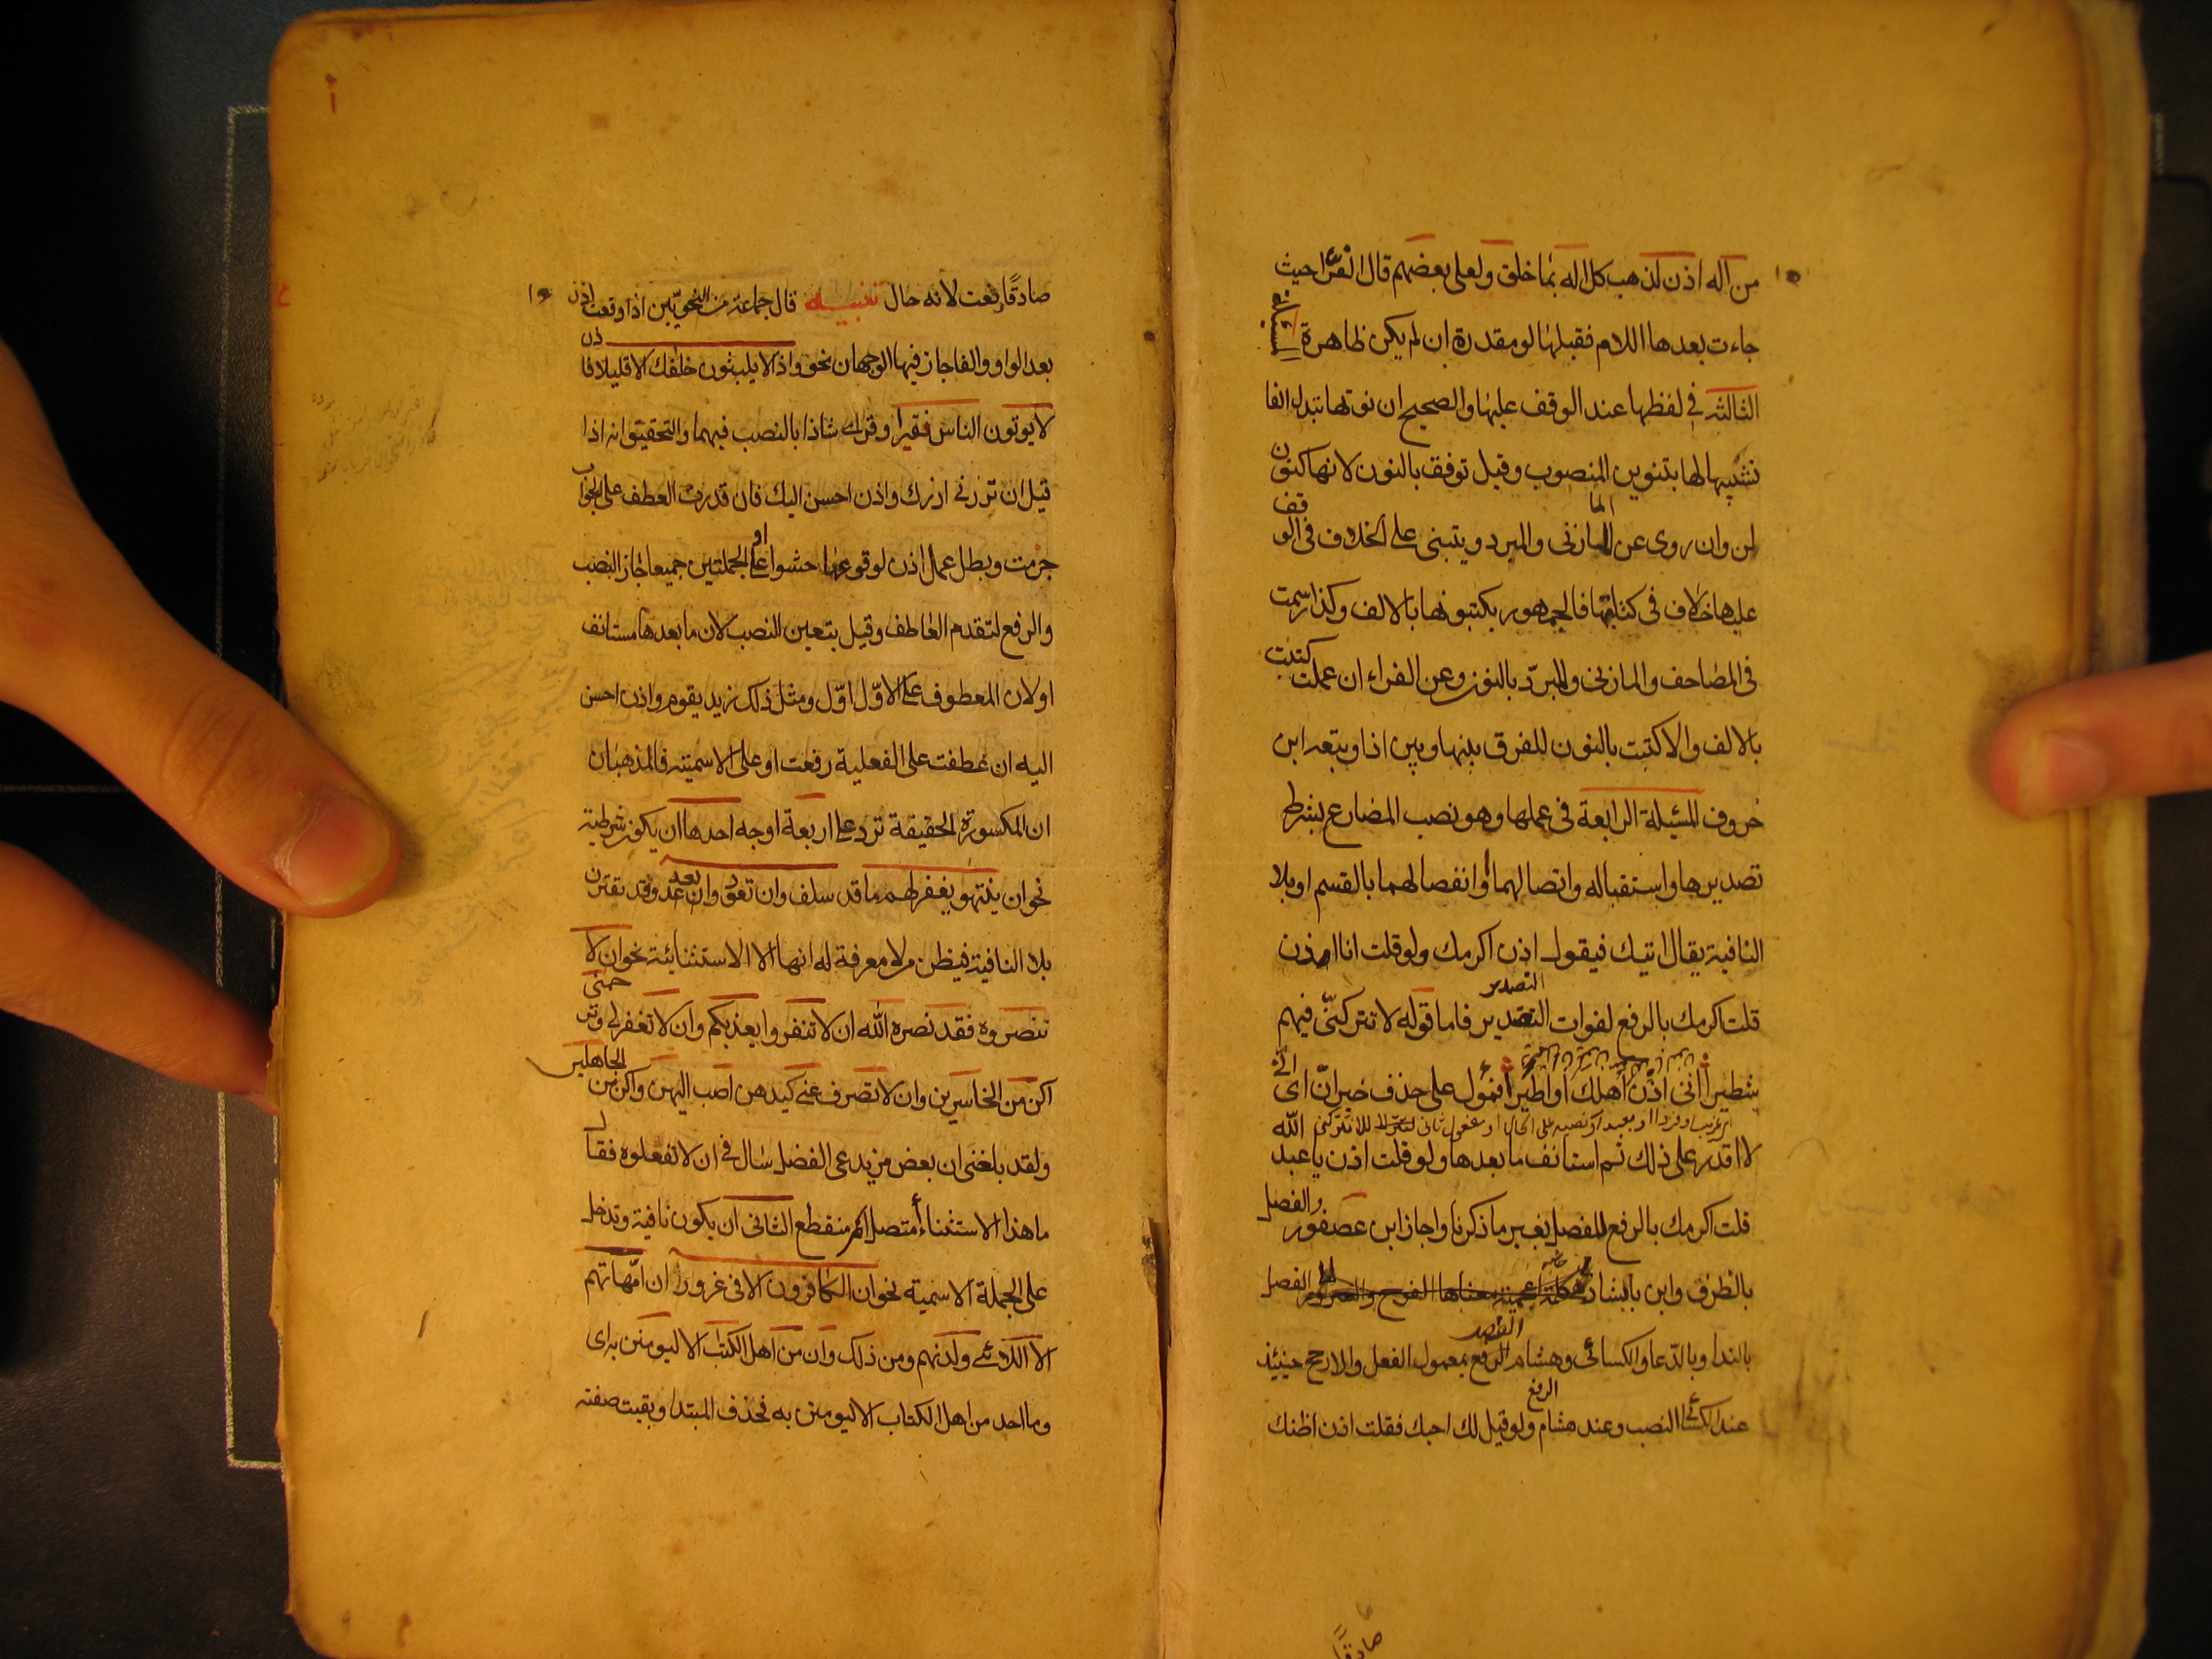 من اله اذن لذهب كل اله بما خلق ولعلى بعضهم قال الفرّاء حيث
جاءت بعدها اللام فقبلها لو مقدرة ان لم يكن ظاهرة المسئلة
الثالثه في لفظها عند الوقف عليها والصحيح ان نونها تبدل الفا
تشبيها لها بتنوين المنصوب وقيل توقف بالنون لانها كنون
لن وان روى عن المازنى والمبرد ويتبنى على الخلاف فى الوقف
عليها خلاف فى كتابتها فالجمهور يكتبونها بالالف وكذا رسمت
فى المصاحف والمازنى والمبرّد بالنون وعن الفراء ان عملت كتبت
بالالف والا كتبت بالنون للفرق بينها وبين اذا وتبعه ابن
خروف المسئلة الرابعة فى عملها وهو نصب المضارع بشرط
تصديرها واستقباله واتصالهما او انفصالهما بالقسم او بلا
النافية يقال اتيك فيقول اذن اكرمك ولو قلت انا اذن
التصدير
قلت اكرمك بالرفع لفوات التصدير فاما قوله لا تتركنّى فيهم
شطيرا انى اذن اهلك او اطيرا فمؤل على حذف خبر انّ اى انى
لا اقدر على ذلك ثم استانف ما بعدها ولو قلت اذن يا عبد الله
قلت اكرمك بالرفع للفصل بغير ما ذكرنا واجاز ابن عصفور والفصل
بالظرف وابن بابشاذ الفصل
بالندا وبالدّعا والكسائى وهشام الفصل بمعمول الفعل والارجح حينئذ
الرفع
عند الكسائى النصب وعند هشام ولو قيل لك احبك فقلت اذن اظنك
صادقا
صادقًا رفعت لانه حال تنبيه قال جماعة من النحويّين اذا وقعت اذن
بعد الواو والفا جاز فيها الوجهان نحو واذا لا يلبثون خلفك الا قليلا فاذن
لا يوتون الناس نقيرا وقرئ شاذا بالنصب فيهما والتحقيق انه اذا
قيل ان تزرنى ازرك واذن احسن اليك فان قدرت العطف على الجواب
جزمت وبطل عمل اذن لوقوعها حشوا او على الجملتين جميعا جاز النصب
والرفع لتقدم العاطف وقيل يتعين النصب لان ما بعدها مستانف
او لان المعطوف على الاوّل اوّل ومثل ذلك زيد يقوم واذن احسن
اليه ان عطفت على الفعلية رفعت او على الاسمية فالمذهبان
ان المكسورة الحقيقة ترد على اربعة اوجه احدها ان يكون شرطية
نحو ان ينتهو يغفر لهم ما قد سلف وان تعودوا نعد وقد تقترن
بلا النافية فيظن من لا معرفة له انها الا الاستثنائية نحو ان لا
تنصروه فقد نصره الله ان لا تنفروا يعذبكم وان لا تغفر لى وترحمنى
اكن من الخاسرين وان لا تصرف عنى كيدهن اصب اليهن واكن من الجاهلين
ولقد بلغنى ان بعض من يدعى الفضل سال فى ان لا تفعلوه فقال
ما هذا الاستثناء أمتصل ام منقطع الثانى ان يكون نافية وتدخل
على الجملة الاسمية نحو ان الكافرون الا فى غرور ان امّهاتهم
الا اللائى ولدنهم ومن ذلك وان من اهل الكتاب الا ليومنن به اى
وما احد من اهل الكتاب الا ليومنن به فحذف المبتدا وبقيت صفته